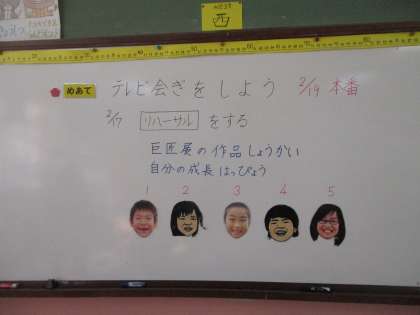 西
めあて テレビ会ぎをしよう 2/19 本番
2/17 リハーサル をする
巨匠展の作品しょうかい
自分の成長はっぴょう
1 2 3 4 5